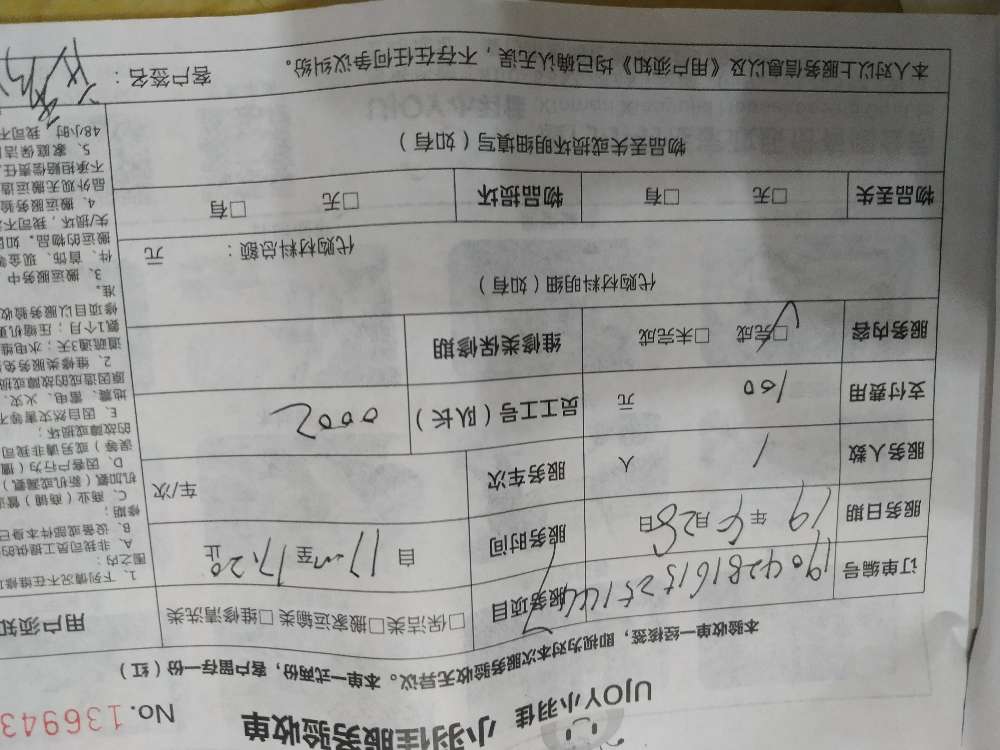 UJOY小羽佳 小羽佳服务验收单 No. 136943
本验收单一经核签，即视为对本次服务验收无异议。本单一式两份，客户留存一份（红）
订单编号 服务项目 □保洁类□搬家运输类□维修清洗类
服务日期 19 年 4 月 28 日 服务时间 自 17:00 至 17:20 止
服务人数 1 人 服务车次 车/次
支付费用 100 元 员工工号（队长） 0002
服务内容 □完成 □未完成 维修类保修期
代购材料明细（如有）
代购材料总额： 元
物品丢失 □无 □有 物品损坏 □无 □有
物品丢失或损坏明细填写（如有）
本人对以上服务信息以及《用户须知》均已确认无误，不存在任何争议纠纷。 客户签名：
用户须知
1. 下列情况不在维修
围之内：
A、非我司员工提供的
B、设备或部件本身已
修期；
C、商业（商铺）管道
机加氨（新机或漏氨）
D、因客户行为（擅
误等）或另请非我司
的故障或损坏；
E、因自然灾害等不
地震、雷电、火灾、
原因造成的故障或损
2、维修类服务免
道疏通3天；水电维
氨1个月；压缩机更
修项目以服务验收
准。
3、搬运服务中，
件、首饰、现金等
搬运的物品。如因
失/损坏，我司不
4、搬运服务验
品外观无搬运造
不承担赔偿责任。
5、家庭保洁服
48小时，我司不